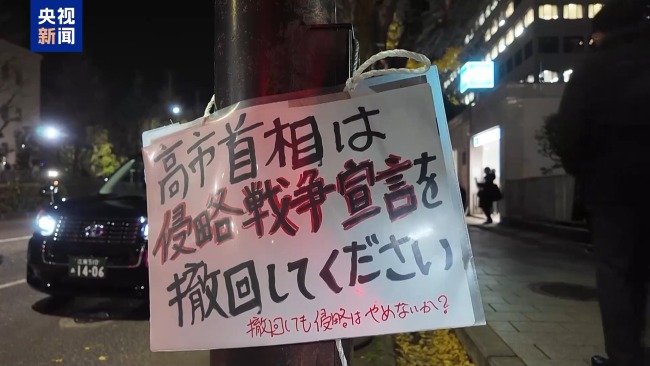 央视
新闻
高市首相は
侵略戦争宣言を
撤回してください
撤回しても侵略はやめないか?
14-06